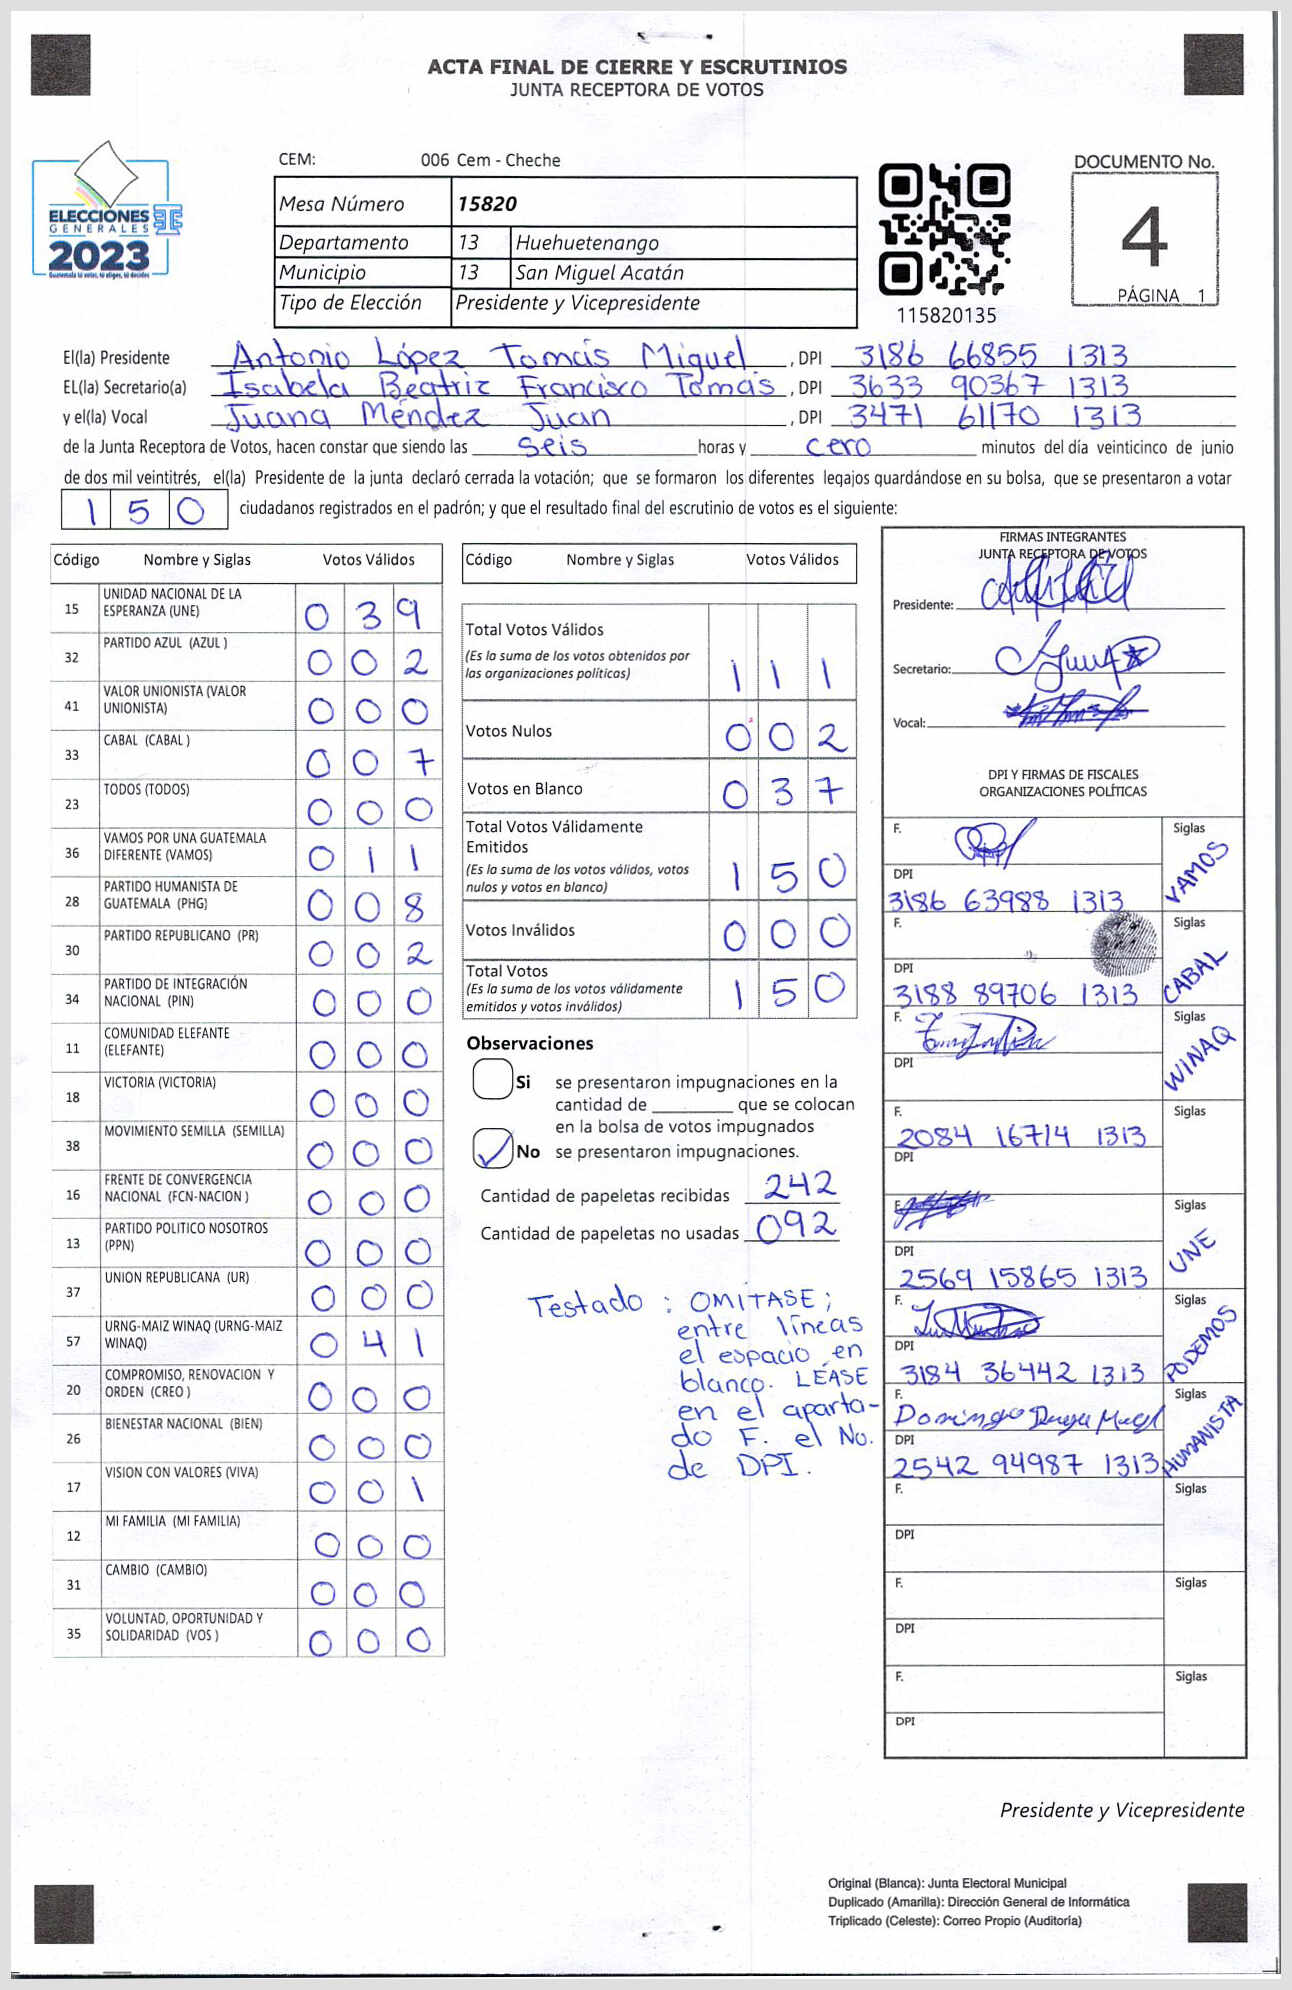 ACTA FINAL DE CIERRE Y ESCRUTINIOS
JUNTA RECEPTORA DE VOTOS
ELECCIONES
GENERALES
2023
Guatemala tú votas, tú eliges, tú decides
CEM: 006 Cem - Cheche
Mesa Número 15820
Departamento 13 Huehuetenango
Municipio 13 San Miguel Acatán
Tipo de Elección Presidente y Vicepresidente
115820135
DOCUMENTO No.
4
PÁGINA 1
El(la) Presidente Antonio López Tomás Miguel, DPI 3186 66855 1313
EL(la) Secretario(a) Isabela Beatriz Francisco Tomás, DPI 3633 90367 1313
y el(la) Vocal Juana Méndez Juan, DPI 3471 61170 1313
de la Junta Receptora de Votos, hacen constar que siendo las seis horas y cero minutos del día veinticinco de junio
de dos mil veintitrés, el(la) Presidente de la junta declaró cerrada la votación; que se formaron los diferentes legajos guardándose en su bolsa, que se presentaron a votar
150 ciudadanos registrados en el padrón; y que el resultado final del escrutinio de votos es el siguiente:
Código Nombre y Siglas Votos Válidos
15 UNIDAD NACIONAL DE LA ESPERANZA (UNE) 0 3 9
32 PARTIDO AZUL (AZUL ) 0 0 2
41 VALOR UNIONISTA (VALOR UNIONISTA) 0 0 0
33 CABAL (CABAL ) 0 0 7
23 TODOS (TODOS) 0 0 0
36 VAMOS POR UNA GUATEMALA DIFERENTE (VAMOS) 0 1 1
28 PARTIDO HUMANISTA DE GUATEMALA (PHG) 0 0 8
30 PARTIDO REPUBLICANO (PR) 0 0 2
34 PARTIDO DE INTEGRACIÓN NACIONAL (PIN) 0 0 0
11 COMUNIDAD ELEFANTE (ELEFANTE) 0 0 0
18 VICTORIA (VICTORIA) 0 0 0
38 MOVIMIENTO SEMILLA (SEMILLA) 0 0 0
16 FRENTE DE CONVERGENCIA NACIONAL (FCN-NACION ) 0 0 0
13 PARTIDO POLITICO NOSOTROS (PPN) 0 0 0
37 UNION REPUBLICANA (UR) 0 0 0
57 URNG-MAIZ WINAQ (URNG-MAIZ WINAQ) 0 4 1
20 COMPROMISO, RENOVACION Y ORDEN (CREO ) 0 0 0
26 BIENESTAR NACIONAL (BIEN) 0 0 0
17 VISION CON VALORES (VIVA) 0 0 1
12 MI FAMILIA (MI FAMILIA) 0 0 0
31 CAMBIO (CAMBIO) 0 0 0
35 VOLUNTAD, OPORTUNIDAD Y SOLIDARIDAD (VOS ) 0 0 0
Código Nombre y Siglas Votos Válidos
Total Votos Válidos
(Es la suma de los votos obtenidos por
las organizaciones políticas) 1 1 1
Votos Nulos 0 0 2
Votos en Blanco 0 3 7
Total Votos Válidamente
Emitidos
(Es la suma de los votos válidos, votos
nulos y votos en blanco) 1 5 0
Votos Inválidos 0 0 0
Total Votos
(Es la suma de los votos válidamente
emitidos y votos inválidos) 1 5 0
Observaciones
Si se presentaron impugnaciones en la
cantidad de ________ que se colocan
en la bolsa de votos impugnados
No se presentaron impugnaciones.
Cantidad de papeletas recibidas 242
Cantidad de papeletas no usadas 092
Testado : OMITASE;
entre líneas
el espacio en
blanco. LÉASE
en el aparta-
do F. el No.
de DPI.
FIRMAS INTEGRANTES
JUNTA RECEPTORA DE VOTOS
Presidente:
Secretario:
Vocal:
DPI Y FIRMAS DE FISCALES
ORGANIZACIONES POLÍTICAS
F. Siglas VAMOS
DPI
3186 63988 1313
F. Siglas CABAL
DPI
3188 89706 1313
F. Siglas WINAQ
DPI
F. Siglas
2084 16714 1313
DPI
F. Siglas UNE
DPI
2569 15865 1313
F. Siglas PODEMOS
DPI
3184 36442 1313
F. Domingo Siglas HUMANISTA
DPI
2542 94987 1313
F. Siglas
DPI
F. Siglas
DPI
F. Siglas
DPI
Presidente y Vicepresidente
Original (Blanca): Junta Electoral Municipal
Duplicado (Amarilla): Dirección General de Informática
Triplicado (Celeste): Correo Propio (Auditoría)